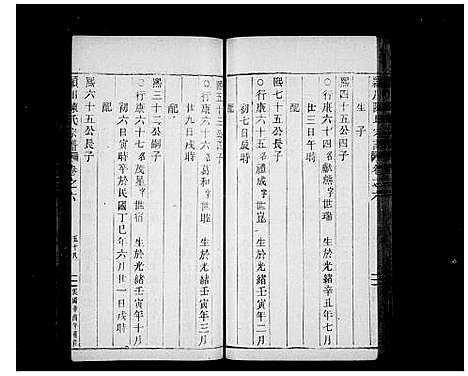 潁川陳氏宗譜 卷之六
生子
熙四十五公四子
○行康六十四名獻熊字世瑞 生於光緒辛丑年七月
廿三日午時
配
熙七十五公長子
○行康六十五名禮成字世崑 生於光緒壬寅年二月
初七日辰時
配
熙五十三公長子
○行康六十六名葛和字世聯 生於光緒壬寅年三月
廿九日戌時
配
熙三十二公嗣子
○行康六十七名茂星字世宿 生於光緒壬寅年十月
初六日寅時卒於民國丁巳年六月廿一日戌時
配
熙六十五公長子
潁川陳氏宗譜 卷之六 五十八